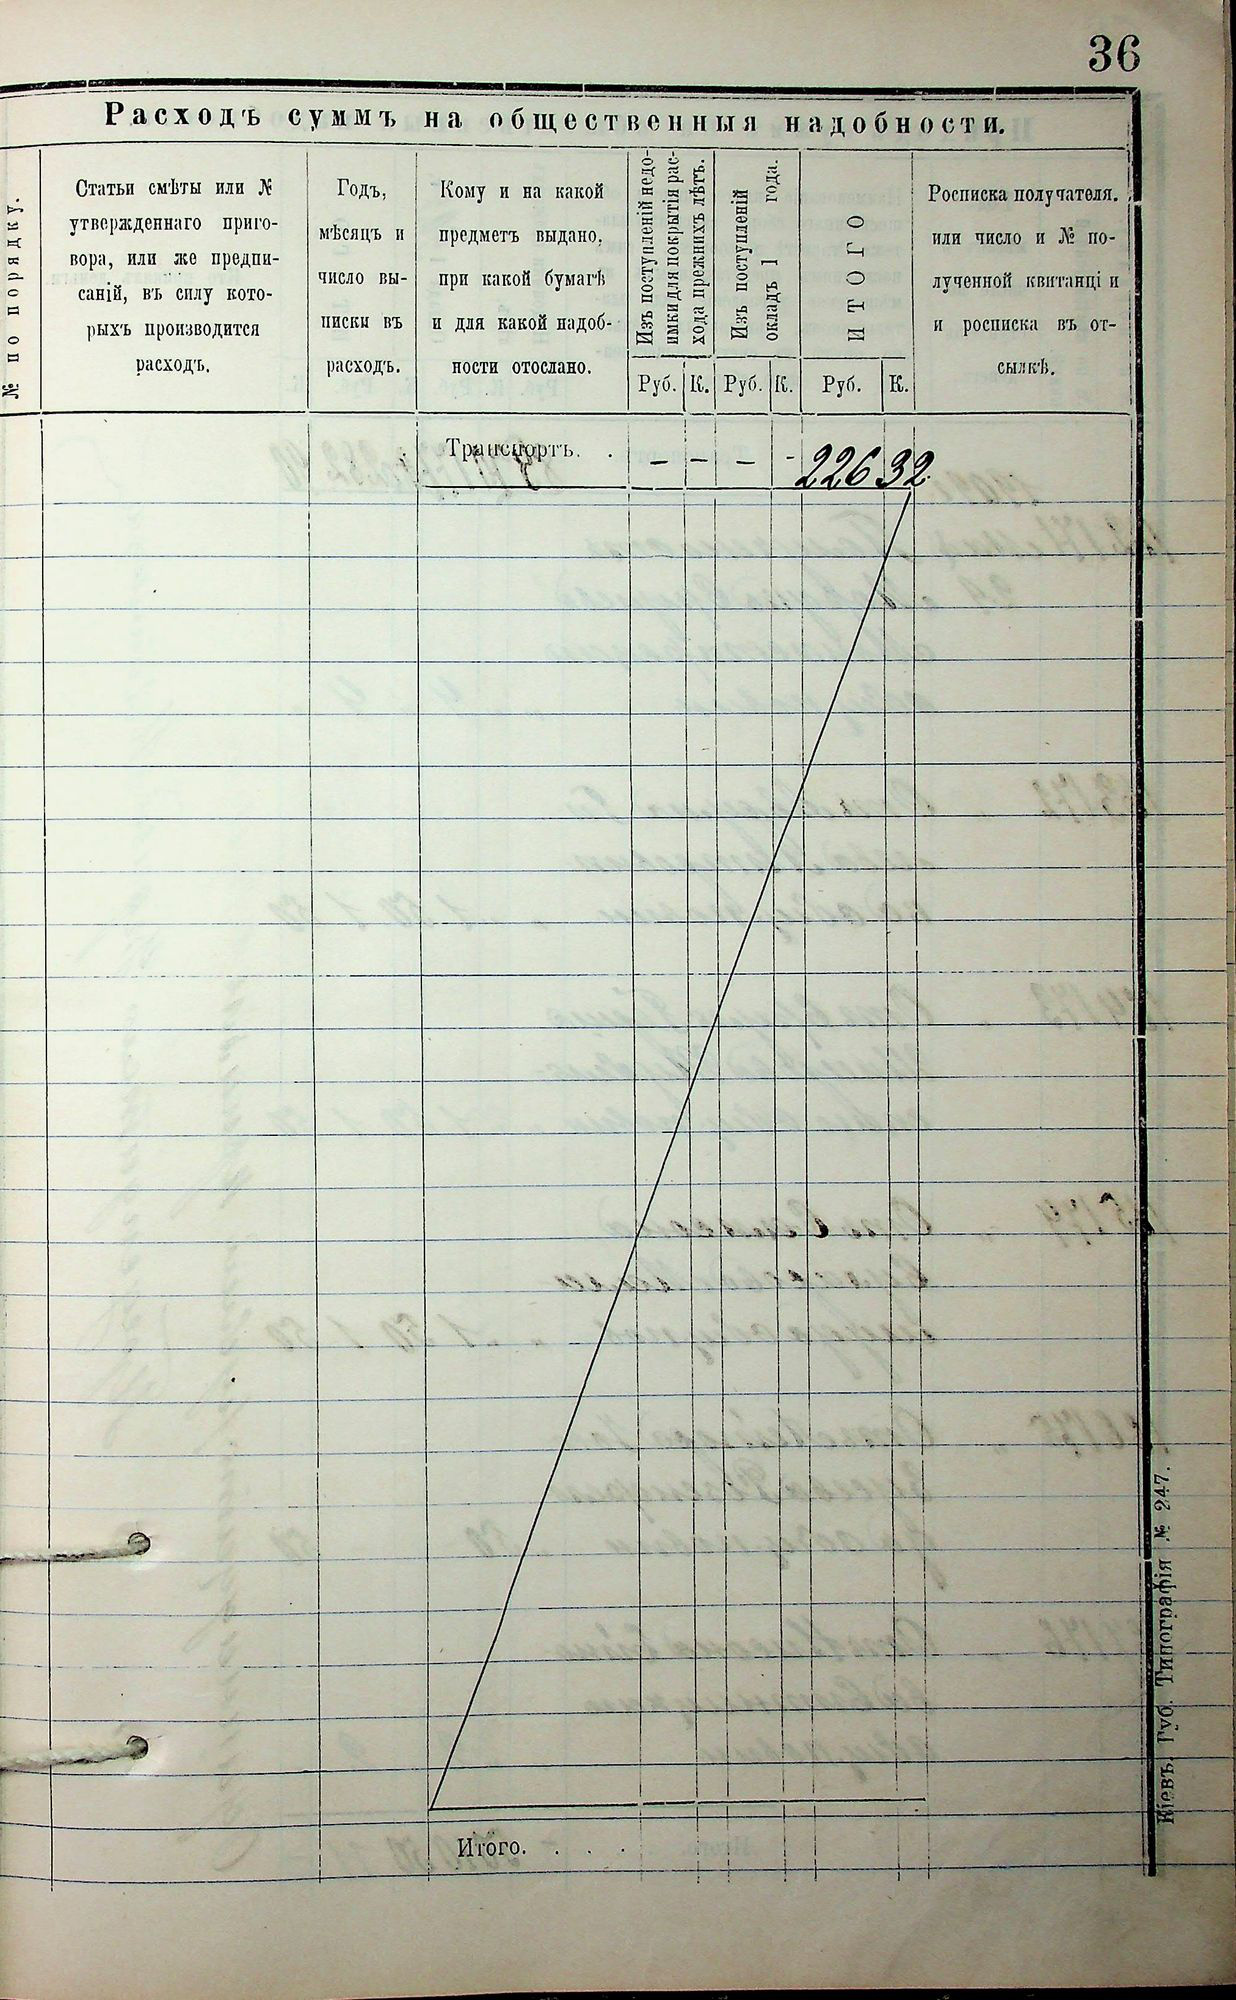 36
Расходъ суммъ на общественныя надобности.
№ по порядку.
Статьи смѣты или №
утвержденнаго приго-
вора, или же предпи-
саній, въ силу кото-
рыхъ производится
расходъ.
Годъ,
мѣсяцъ и
число вы-
писки въ
расходъ.
Кому и на какой
предметъ выдано,
при какой бумагѣ
и для какой надоб-
ности отослано.
Изъ поступленій недо-
имки для покрытія рас-
хода прежнихъ лѣтъ.
Изъ поступленій
окладъ 1 года.
ИТОГО
Росписка получателя.
или число и № по-
лученной квитанціи
и росписка въ от-
сылкѣ.
Руб. К. Руб. К. Руб. К.
Транспортъ. . — — — - 226 32
Итого. . . .
Кіевъ. Губ. Типографія № 247.